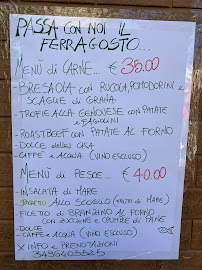 PASSA CON NOI IL
FERRAGOSTO...
MENÙ DI CARNE... € 35.00
- BRESAOLA CON RUCOLA, POMODORINI E
SCAGLIE DI GRANA.
- TROFIE ALLA GENOVESE CON PATATE
E FAGIOLINI
- ROASTBEEF CON PATATE AL FORNO
- DOLCE DELLA CASA
- CAFFÈ E ACQUA (VINO ESCLUSO)
MENÙ DI PESCE... € 40.00
- INSALATA DI MARE
- RISOTTO ALLO SCOGLIO (FRUTTI DI MARE)
- FILETTO DI BRANZINO AL FORNO
CON ZUCCHINE E CRUMBLE DI PANE
- DOLCE
- CAFFÈ E ACQUA (VINO ESCLUSO)
X INFO E PRENOTAZIONI
3496405525